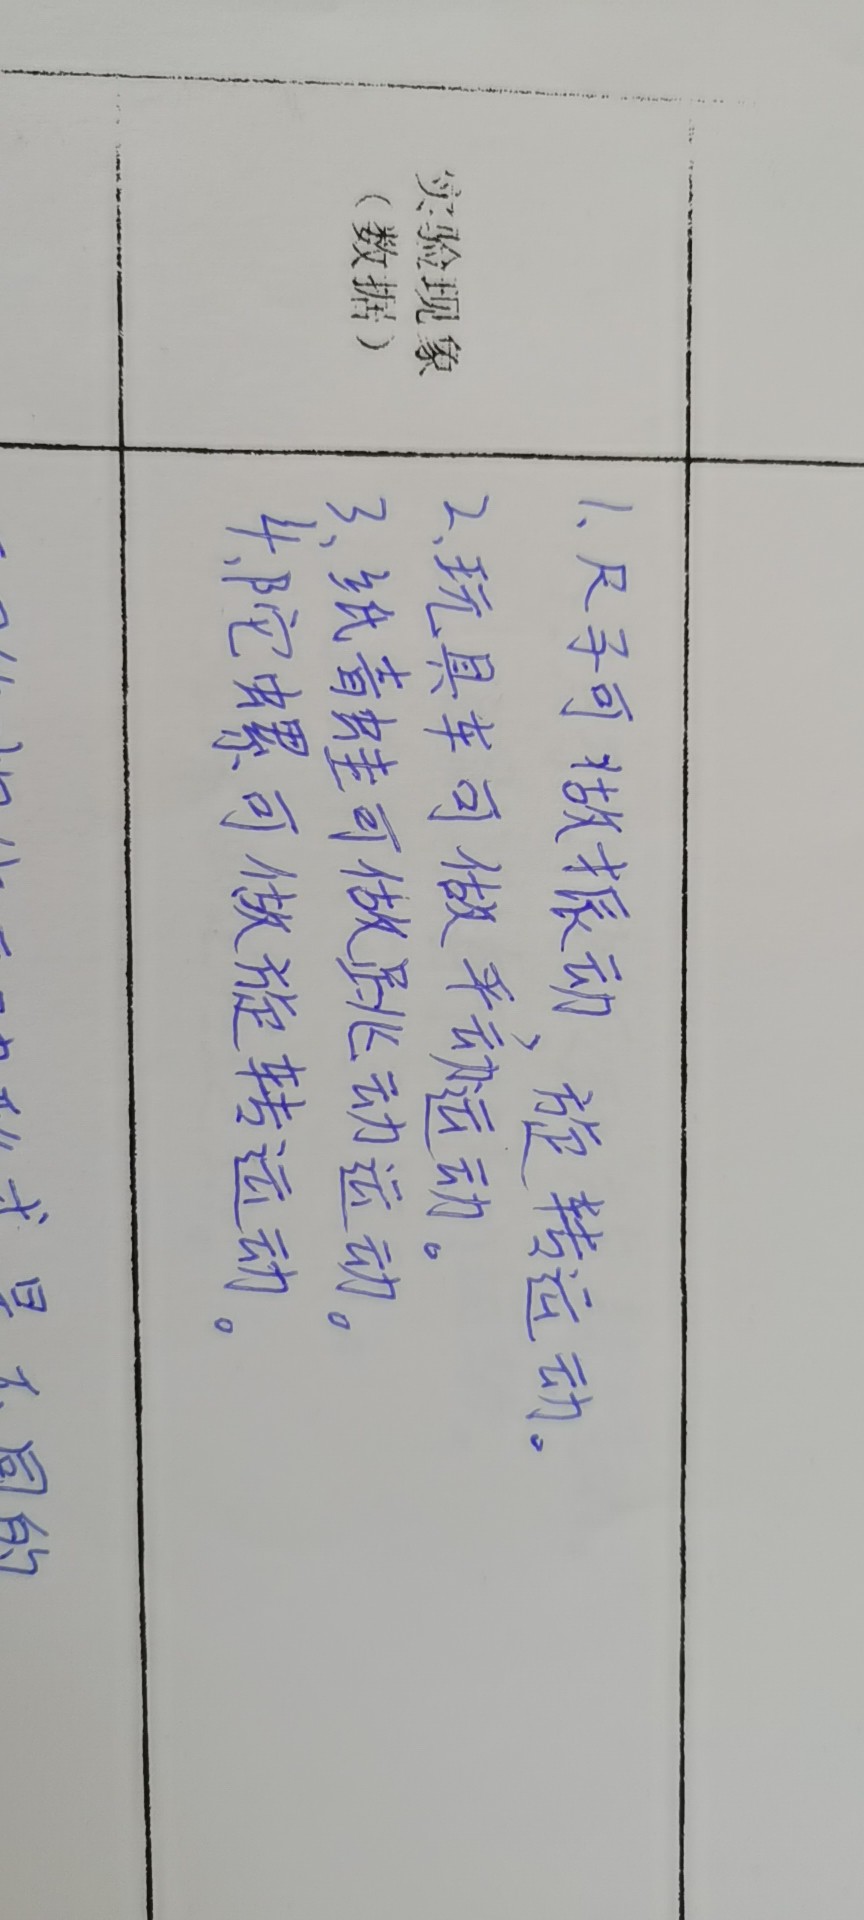 实验现象
（数据）
1、尺子可做振动、旋转运动。
2、玩具车可做平动运动。
3、纸青蛙可做跳动运动。
4、陀螺可做旋转运动。
是不同的